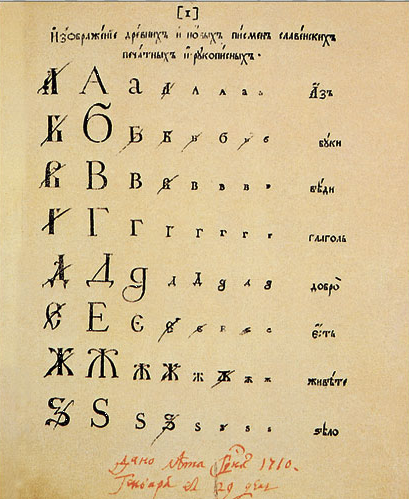 [1]
Изображенїе древнихъ и новыхъ писменъ славенскихъ
печатныхъ и рукописныхъ.
А А а а а а а а Азъ
Б Б Б Б Б Б Б Б буки
В В В В В В В В вѣди
Г Г Г Г Г Г Г Г глаголь
Д Д д д д д д д добро
Є Е Є Є Є Є Є Є есть
Ж Ж Ж Ж Ж Ж Ж Ж живѣте
Ѕ Ѕ Ѕ Ѕ Ѕ Ѕ Ѕ Ѕ ѕѣло
дано лѣта 1710.
Генваря 29 дня